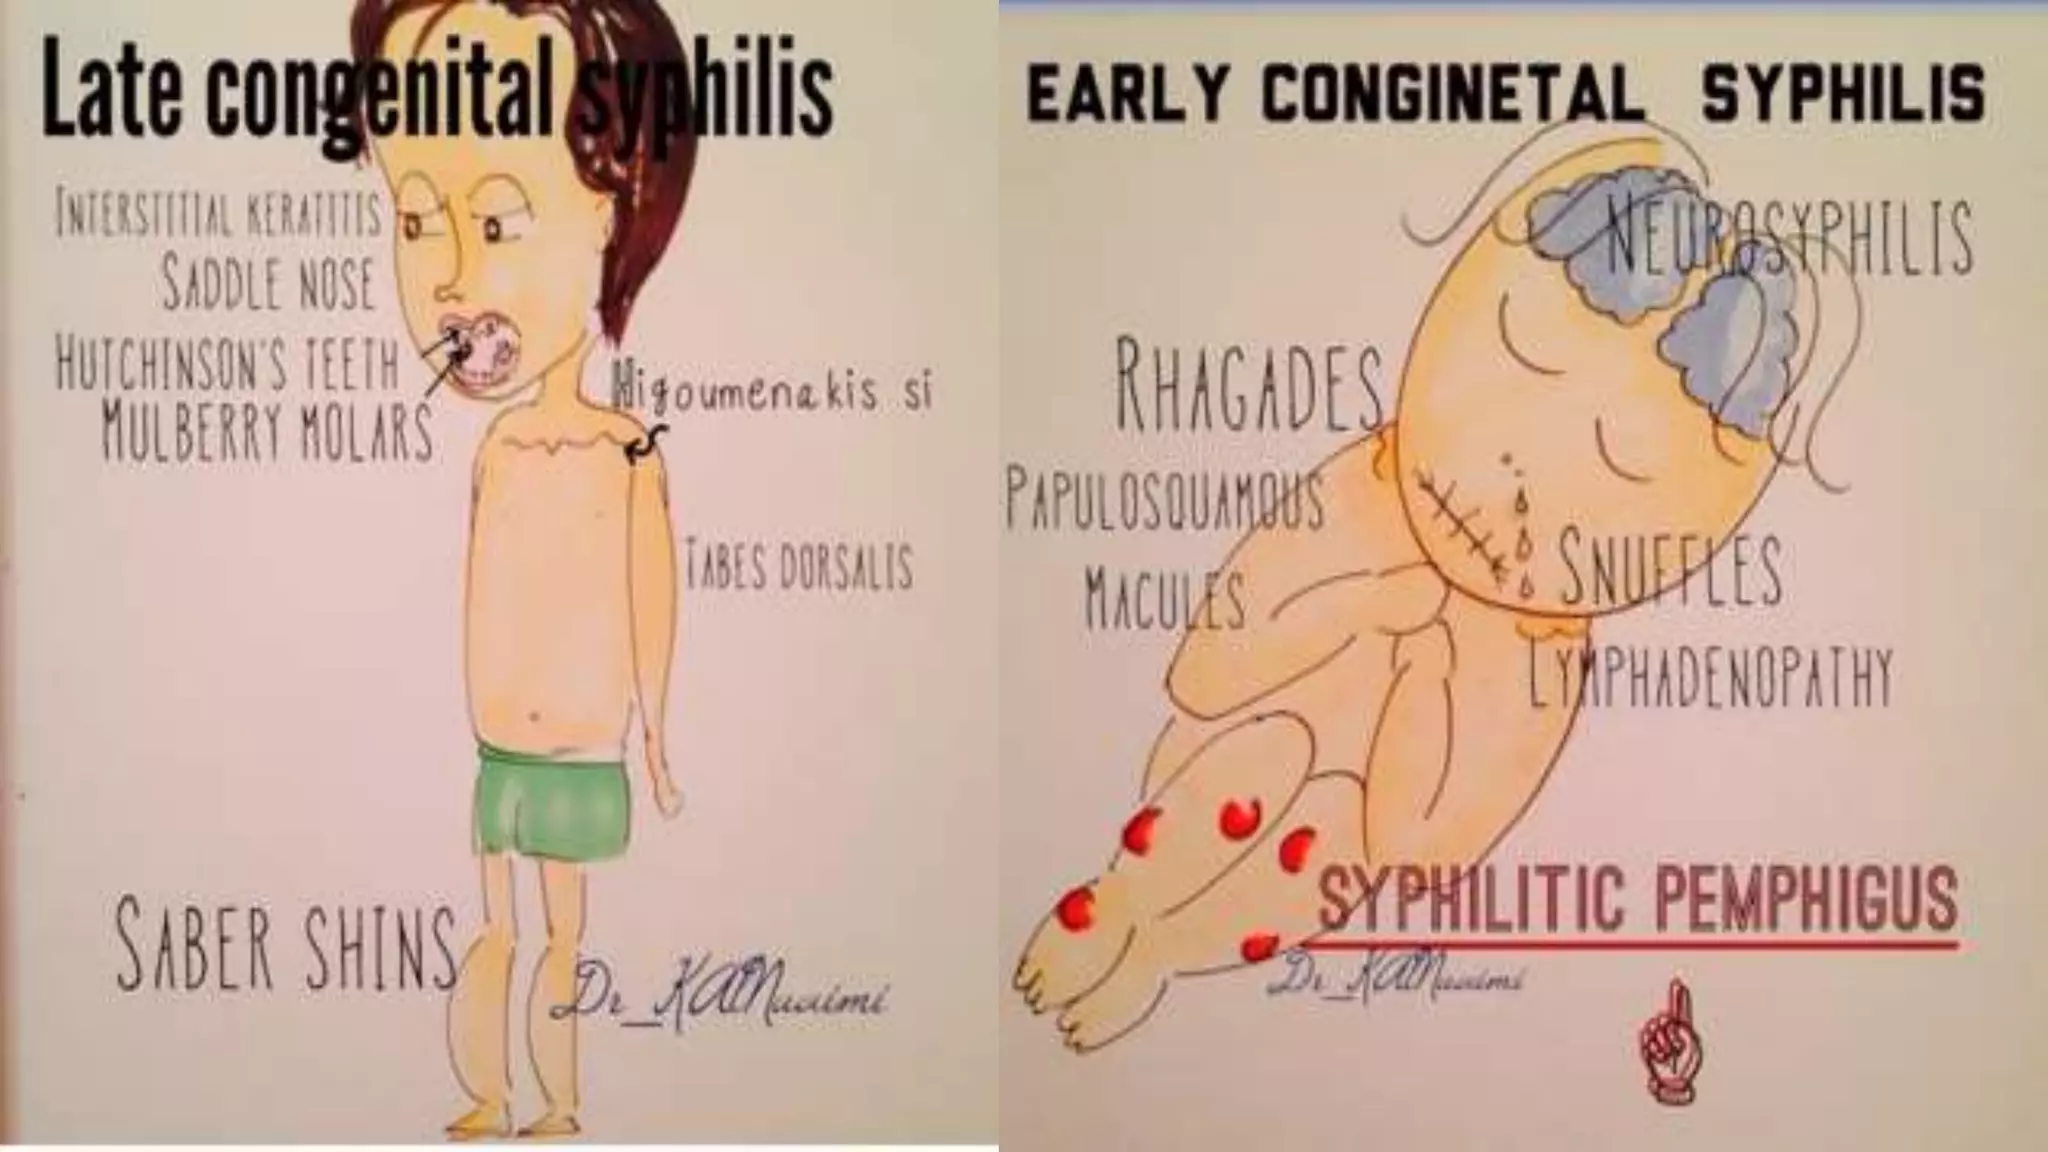 Late congenital syphilis
INTERSTITIAL KERATITIS
SADDLE NOSE
HUTCHINSON'S TEETH
MULBERRY MOLARS
Higoumenakis si
TABES DORSALIS
SABER SHINS
Dr_KAlNuaimi
EARLY CONGINETAL SYPHILIS
NEUROSYPHILIS
RHAGADES
PAPULOSQUAMOUS
MACULES
SNUFFLES
LYMPHADENOPATHY
SYPHILITIC PEMPHIGUS
Dr_KAlNuaimi